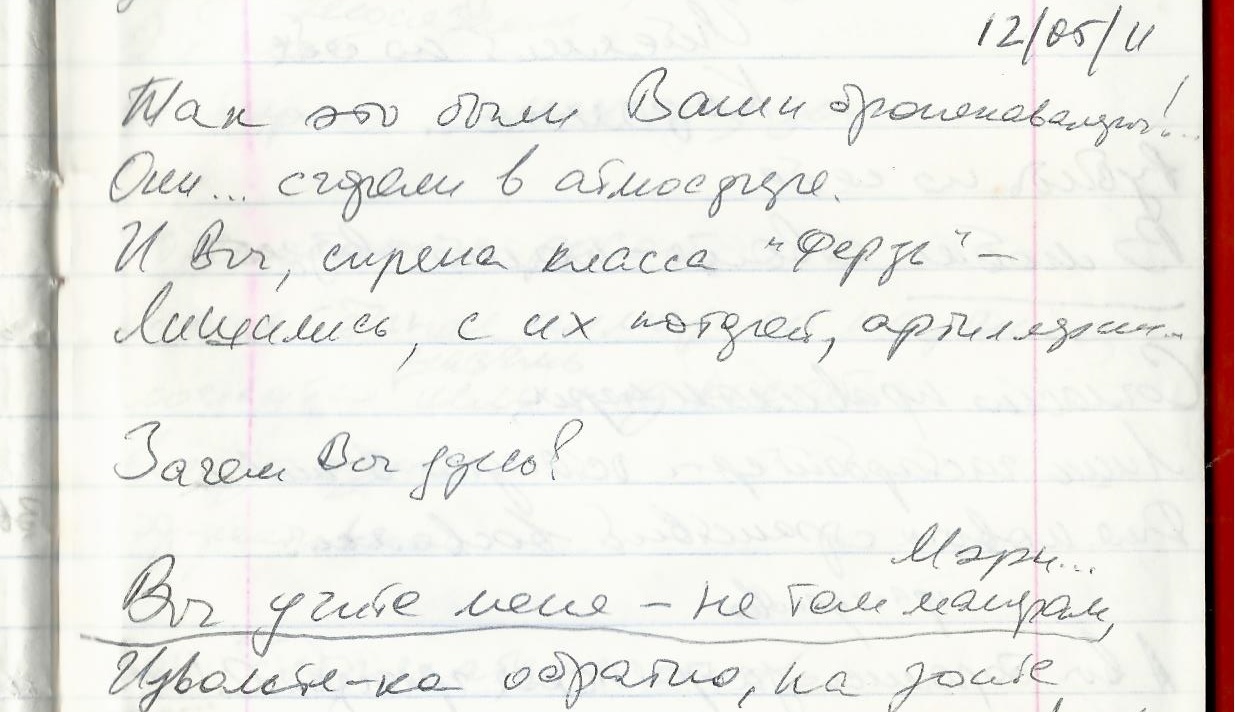 12/05/11
Так это были Ваши бронекавалеры!..
Они... сгорели в атмосфере.
И Вы, сирена класса "Ферзь" –
Лишились, с их потерей, артиллерии...
Зачем Вы здесь?
Мэри...
Вы учите меня – не тем манерам,
Извольте-ка обратно, на